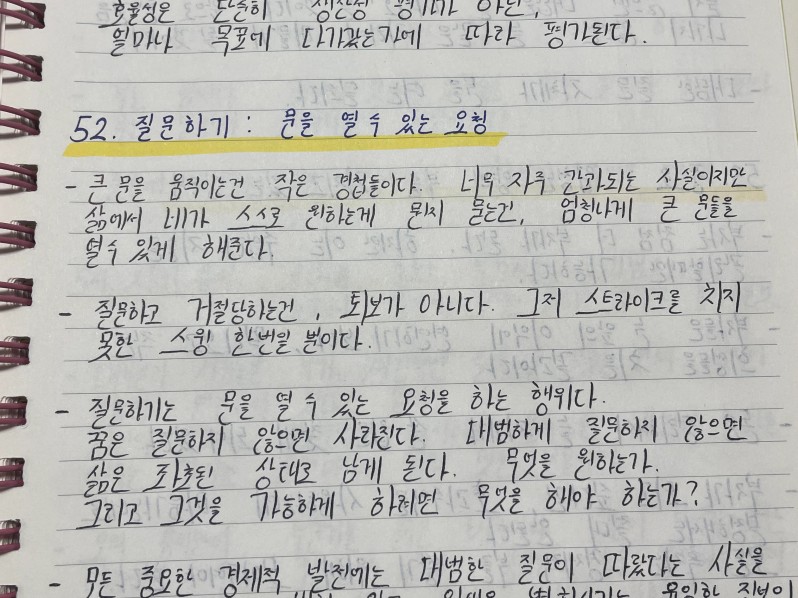 효율성은 단순히 생산성 평가가 아닌,
얼마나 목표에 다가갔는가에 따라 평가된다.
52. 질문하기 : 문을 열 수 있는 요청
- 큰 문을 움직이는건 작은 경첩들이다. 너무 자주 간과되는 사실이지만
삶에서 네가 스스로 원하는게 뭔지 묻는건, 엄청나게 큰 문들을
열 수 있게 해준다.
- 질문하고 거절당하는건, 퇴보가 아니다. 그저 스트라이크를 치지
못한 스윙 한번일 뿐이다.
- 질문하기는 문을 열 수 있는 요청을 하는 행위다.
꿈은 질문하지 않으면 사라진다. 대범하게 질문하지 않으면
삶은 좌초된 상태로 남게 된다. 무엇을 원하는가.
그리고 그것을 가능하게 하려면 무엇을 해야 하는가?
- 모든 중요한 경제적 발전에는 대범한 질문이 따랐다는 사실을